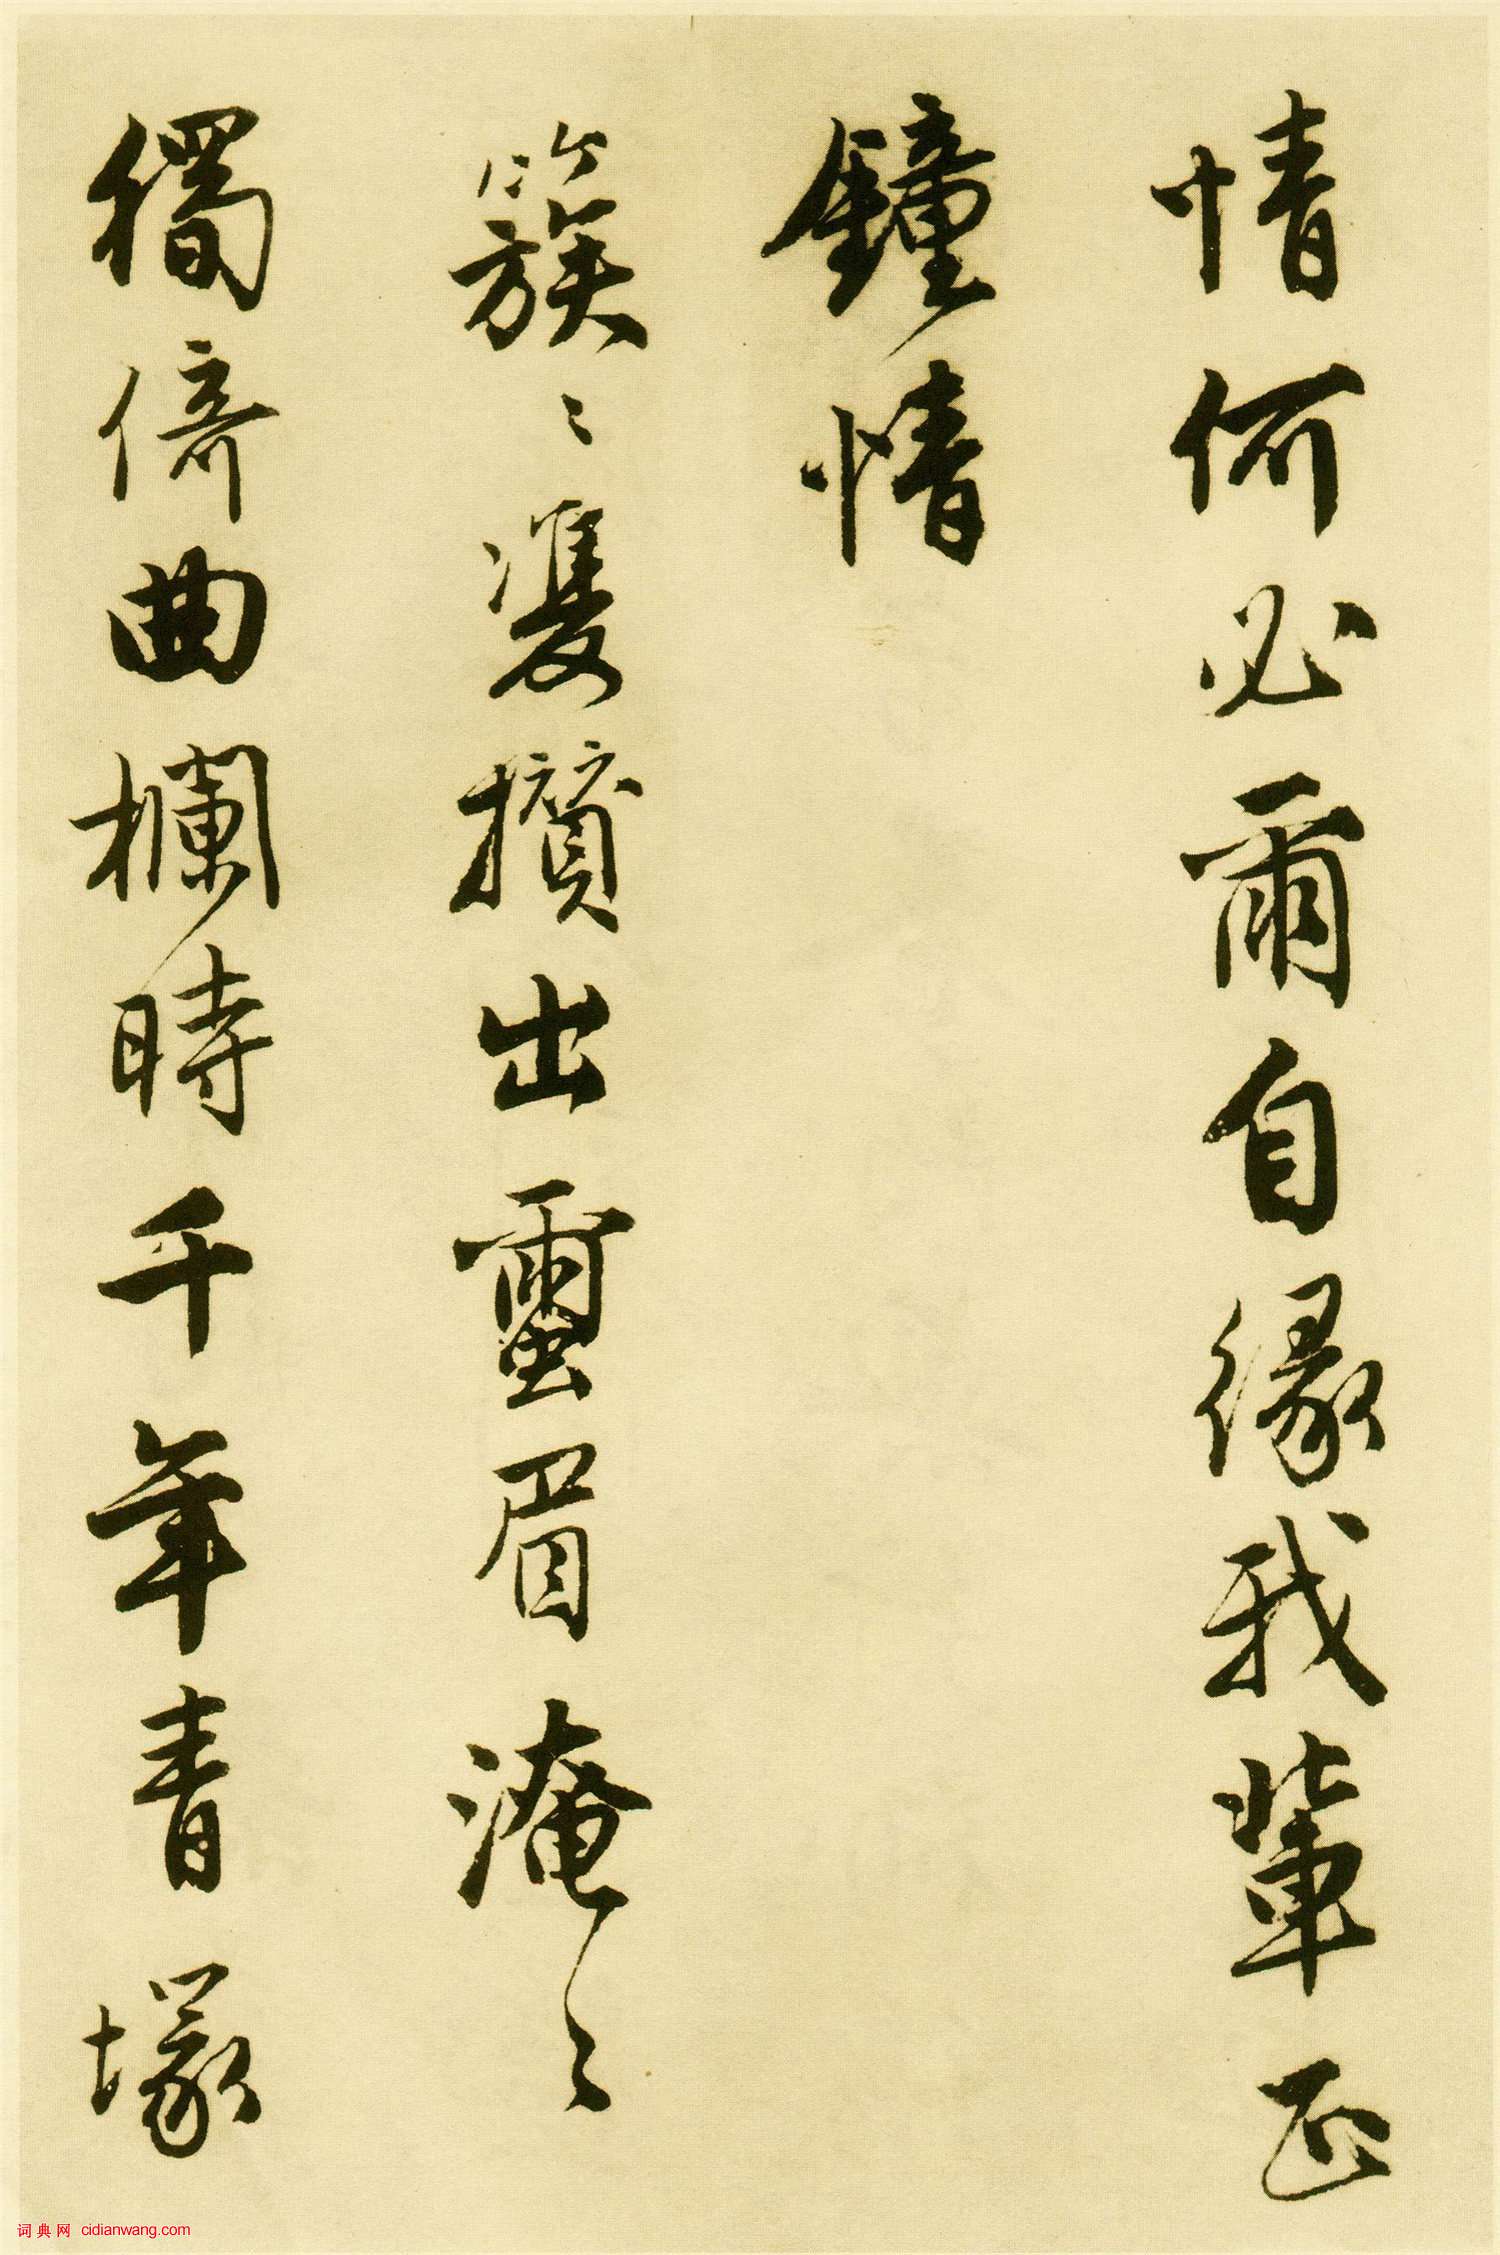 情何必爾自緣我輩正
鐘情
簇〻雙攢出蠒眉淹〻
獨倚曲欄時千年青塚
词典网 cidianwang.com